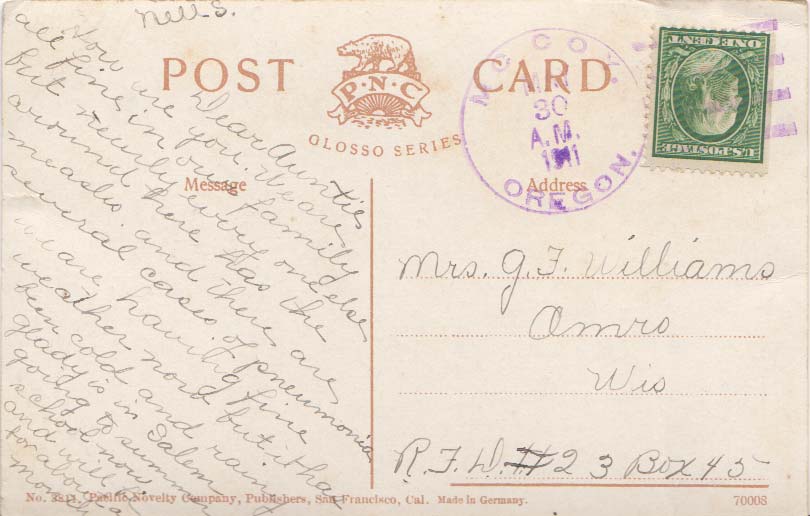 Nell S.
POST CARD
P.N.C
GLOSSO SERIES
Message
Address
McCOY.
30
A.M.
1911
OREGON.
U.S.POSTAGE
ONE CENT
Dear Aunties
How are you. We are
all fine in our family
but nearly every one else
around here has the
measles and there are
several cases of pneumonia
We are having fine
weather now but it has
been cold and rainy
Gladys is in Salem
going to summer
school now
and will be
for about a
month
Mrs. G. F. Williams
Omro
Wis
R.F.D. #23 Box 45
No. 3811. Pacific Novelty Company, Publishers, San Francisco, Cal. Made in Germany.
70008